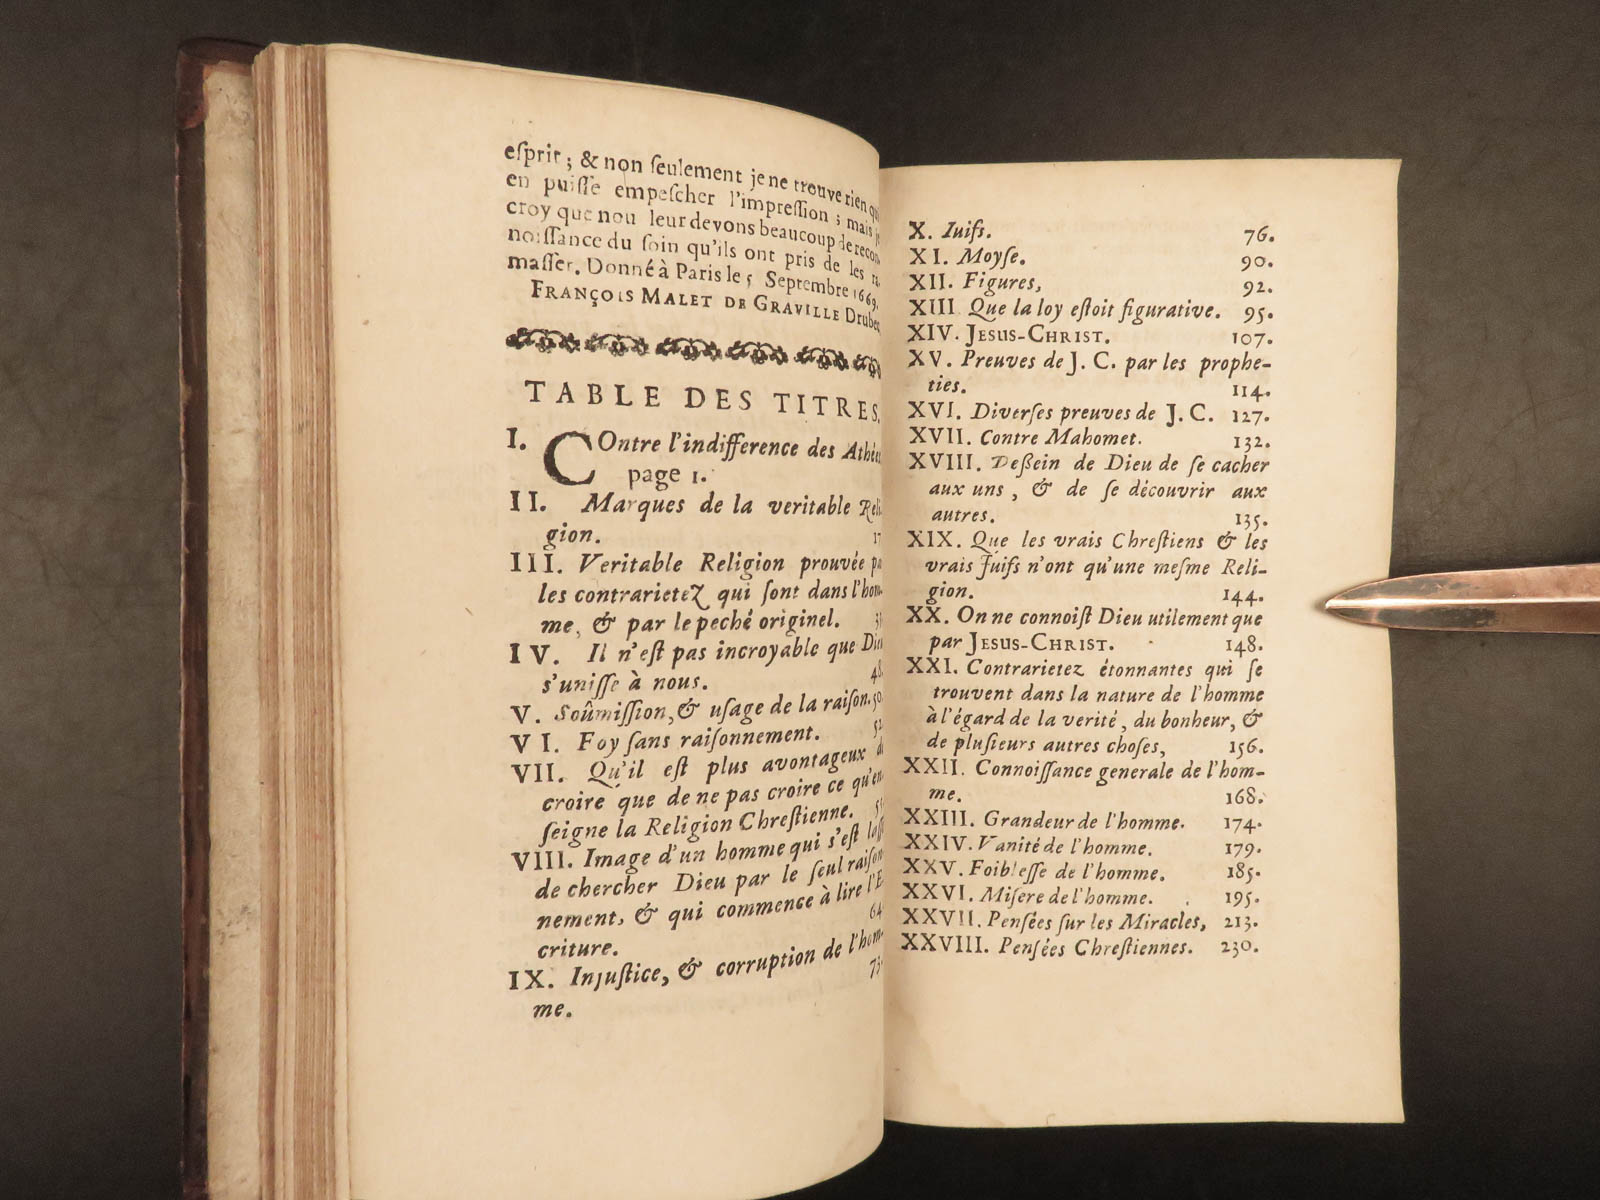 eſprit ; & non ſeulement je ne trouve rien qui
en puiſſe empeſcher l'impreſſion ; mais je
croy que nou leur devons beaucoup de recon
noiſſance du ſoin qu'ils ont pris de les
maſſer. Donné à Paris le 5 Septembre 1669.
FRANÇOIS MALET DE GRAVILLE Drubec
TABLE DES TITRES.
I. COntre l'indifference des Athées
page 1.
II. Marques de la veritable Reli-
gion. 17
III. Veritable Religion prouvée pa
les contrarietez qui ſont dans l'hom-
me, & par le peché originel.
IV. Il n'eſt pas incroyable que Dieu
s'uniſſe à nous. 48
V. Soûmiſſion, & uſage de la raiſon. 50
VI. Foy ſans raiſonnement. 52
VII. Qu'il eſt plus avontageux de
croire que de ne pas croire ce qu'en-
ſeigne la Religion Chreſtienne.
VIII. Image d'un homme qui s'eſt laſſé
de chercher Dieu par le ſeul raiſon
nement, & qui commence à lire l'E-
criture. 64
IX. Injuſtice, & corruption de l'hom-
me. 73.
X. Iuifs. 76.
XI. Moyſe. 90.
XII. Figures, 92.
XIII Que la loy eſtoit figurative. 95.
XIV. JESUS-CHRIST. 107.
XV. Preuves de J. C. par les prophe-
ties. 114.
XVI. Diverſes preuves de J. C. 127.
XVII. Contre Mahomet. 132.
XVIII. Deßein de Dieu de ſe cacher
aux uns, & de ſe découvrir aux
autres. 135.
XIX. Que les vrais Chreſtiens & les
vrais Juifs n'ont qu'une meſme Reli-
gion. 144.
XX. On ne connoiſt Dieu utilement que
par JESUS-CHRIST. 148.
XXI. Contrarietez étonnantes qui ſe
trouvent dans la nature de l'homme
à l'égard de la verité, du bonheur, &
de pluſieurs autres choſes, 156.
XXII. Connoiſſance generale de l'hom-
me. 168.
XXIII. Grandeur de l'homme. 174.
XXIV. Vanité de l'homme. 179.
XXV. Foibleſſe de l'homme. 185.
XXVI. Miſere de l'homme. 195.
XXVII. Penſées ſur les Miracles, 213.
XXVIII. Penſées Chreſtiennes. 230.